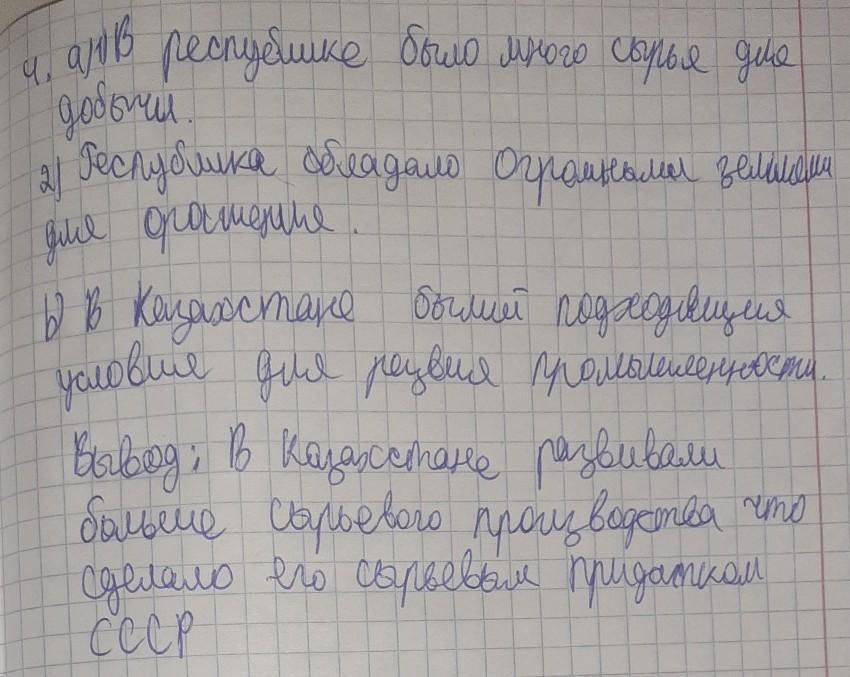 4. а) 1) В республике было много сырья для
добычи.
2) Республика обладало огромными землями
для орошения.
b) В Казахстане былий подходящия
условие для развия промышленности.
Вывод: В Казахстане развивали
больше сырьевого производства что
сделало его сырьевым придатком
СССР